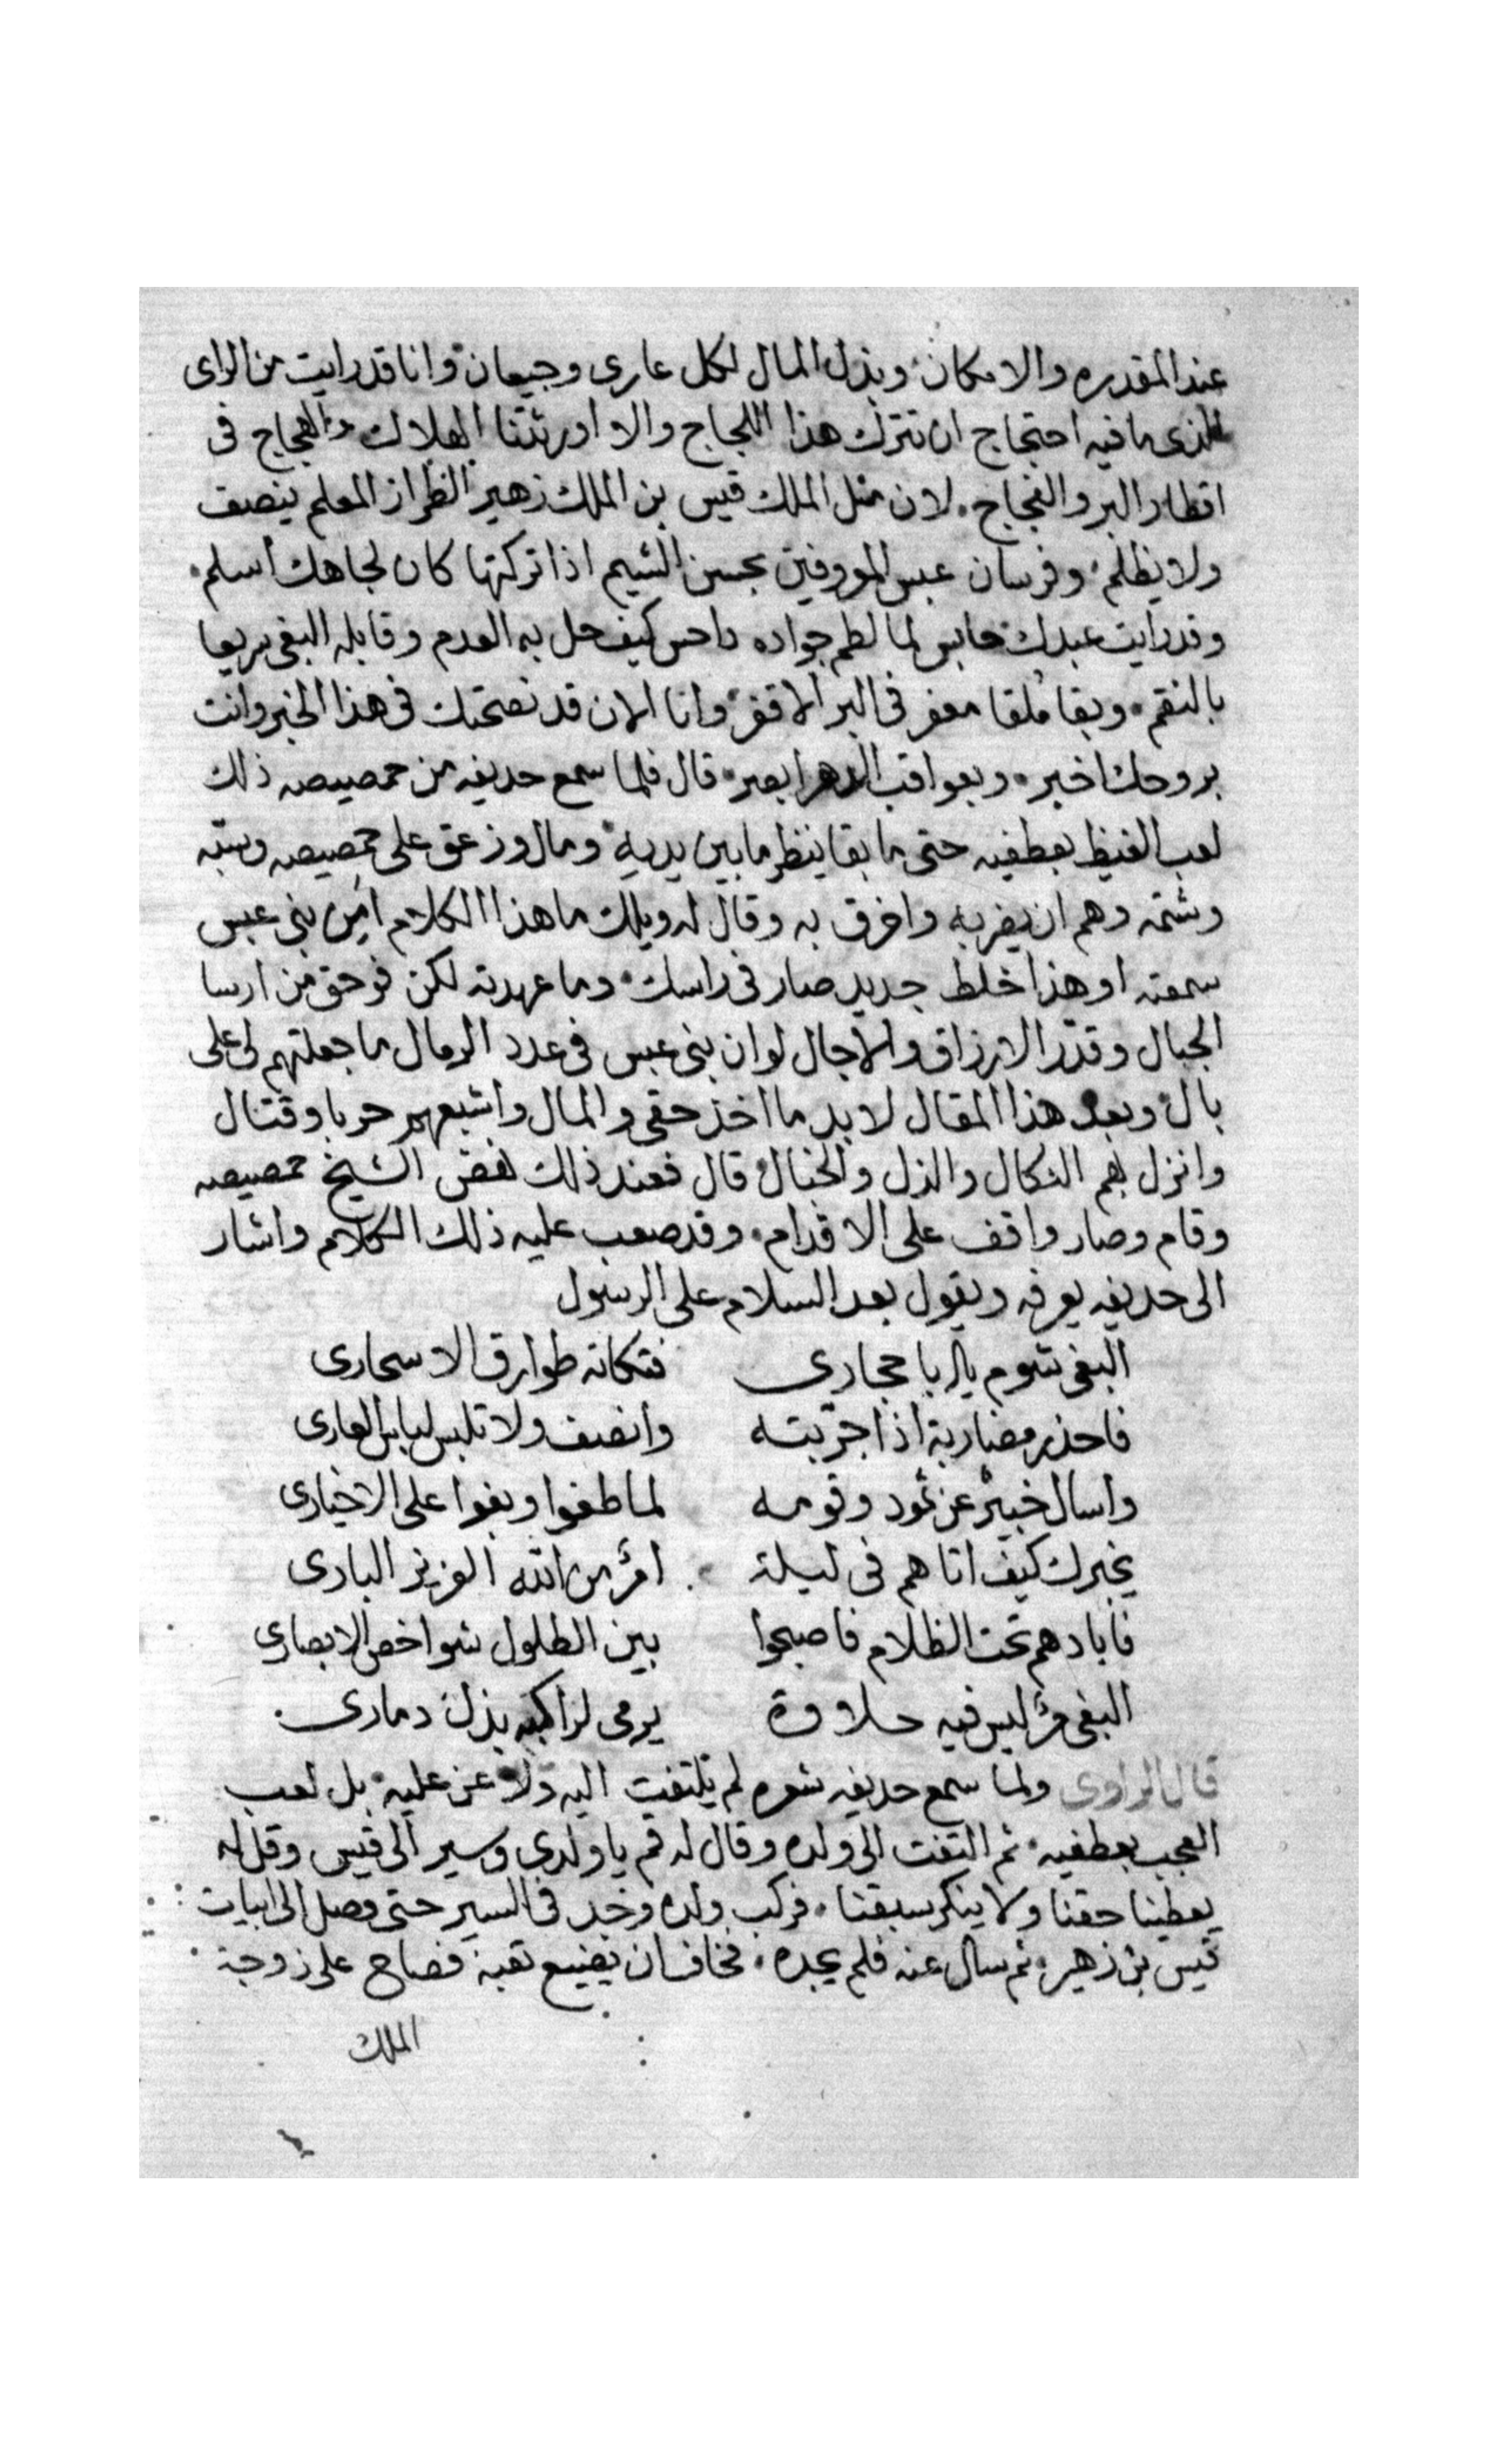 عند المقدره والامكان وبذل المال لكل عارى وجيعان وانا قد رايت من الراى
الذى ما فيه احتجاج ان تترك هذا اللجاج والا اورثتنا الهلاك والعجاج فى
اقطار البر والفجاج. لان مثل الملك قيس بن الملك زهير الطراز المعلم ينصف
ولا يظلم. وفرسان عبس الموروفين بحسن الشيم اذا تركتها كان لجاهك اسلم.
وقد رايت عبدك حابس لما لطم جواده داحس كيف حل به العدم وقابله البغى سريعا
بالنقم. وبقا ملقا معفر فى البر الاقفر وانا الان قد نصحتك فى هذا الخبر وانت
بروحك اخبر. وبعواقب الدهر ابصر. قال فلما سمع حديفه من حمصيصه ذلك
لعب الغيظ بعطفيه حتى ما بقا ينظر ما بين يديه ومال وزعق على حمصيصه وسبّه
وشتمه وهم ان يضربه واخرق به وقال له ويلك ما هذا الكلام أمن بنى عبس
سمعته او هذا خلط جديد صار فى راسك. وما عهدته لكن فوحق من ارسا
الجبال وقدّر الارزاق والاجال لو ان بنى عبس فى عدد الرمال ما جعلتهم لى على
بال وبعد هذا المقال لابد ما اخذ حقى والمال واشبعهم حربا وقتال
وانزل بهم النكال والذل والخبال قال فعند ذلك نهض الشيخ حمصيصه
وقام وصار واقف على الاقدام. وقد صعب عليه ذلك الكلام واشار
الى حديفه يعرفه ويقول بعد السلام على الرسول
البغى شوم يال يا حجارى فتكاته طوارق الاسحارى
فاحذر مضاربة اذا جرّبته وانصف ولا تلبس لباس العارى
واسال خبيرٌ عن ثمود وقومه لما طغوا وبغوا على الاخيارى
يخبرك كيف اتاهم فى ليلة امرٌ من الله العزيز البارى
فابادهم تحت الظلام فاصبحوا بين الطلول شواخص الابصارى
البغى مرٌ ليس فيه حلاوة يرمى لراكبه بذل دمارى.
قال الراوى ولما سمع حديفه شعره لم يلتفت اليه ولا عن عليه بل لعب
العجب بعطفيه. ثم التفت الى ولده وقال له قم يا ولدى وسير الى قيس وقل له
يعطينا حقنا ولا ينكر سبقنا. فركب ولده وجد فى السير حتى وصل الى ابيات
قيس بن زهير. ثم سال عنه فلم يجده. فخاف ان يضيع تعبه فصاح على زوجة
الملك